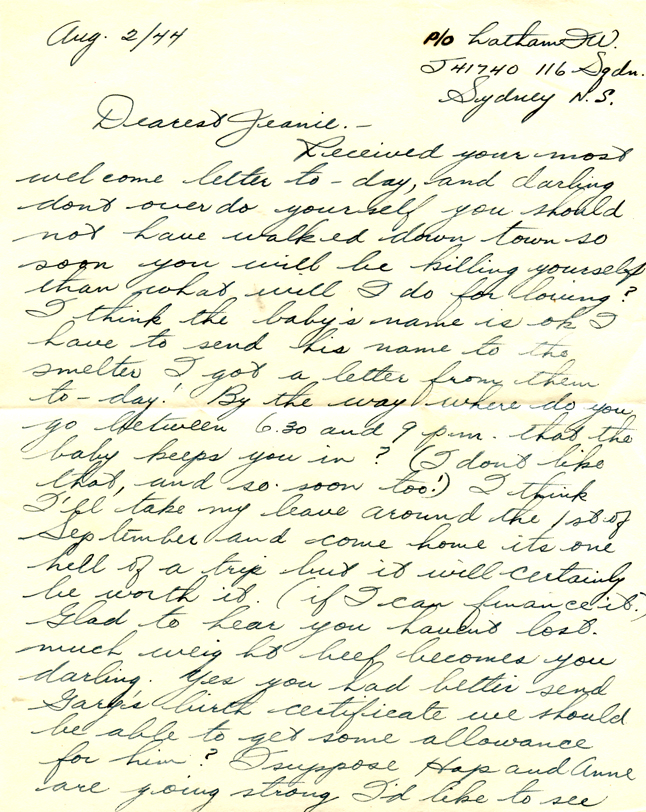 Aug. 2/44
P/O Latham F W.
J 41740 116 Sqdn.
Sydney N.S.
Dearest Jeanie. -
Received your most
welcome letter to-day, and darling
dont overdo yourself you should
not have walked down town so
soon you will be killing yourself
than what will I do for loving?
I think the baby's name is ok I
have to send his name to the
smelter I got a letter from them
to-day! By the way where do you
go between 6.30 and 9 p.m. that the
baby keeps you in? (I dont like
that, and so soon too!) I think
I'll take my leave around the 1st of
September and come home its one
hell of a trip but it will certainly
be worth it. (if I can finance it.)
Glad to hear you havent lost.
much weight beef becomes you
darling. Yes you had better send
Gary's birth certificate we should
be able to get some allowance
for him? I suppose Hap and Anne
are going strong I'd like to see